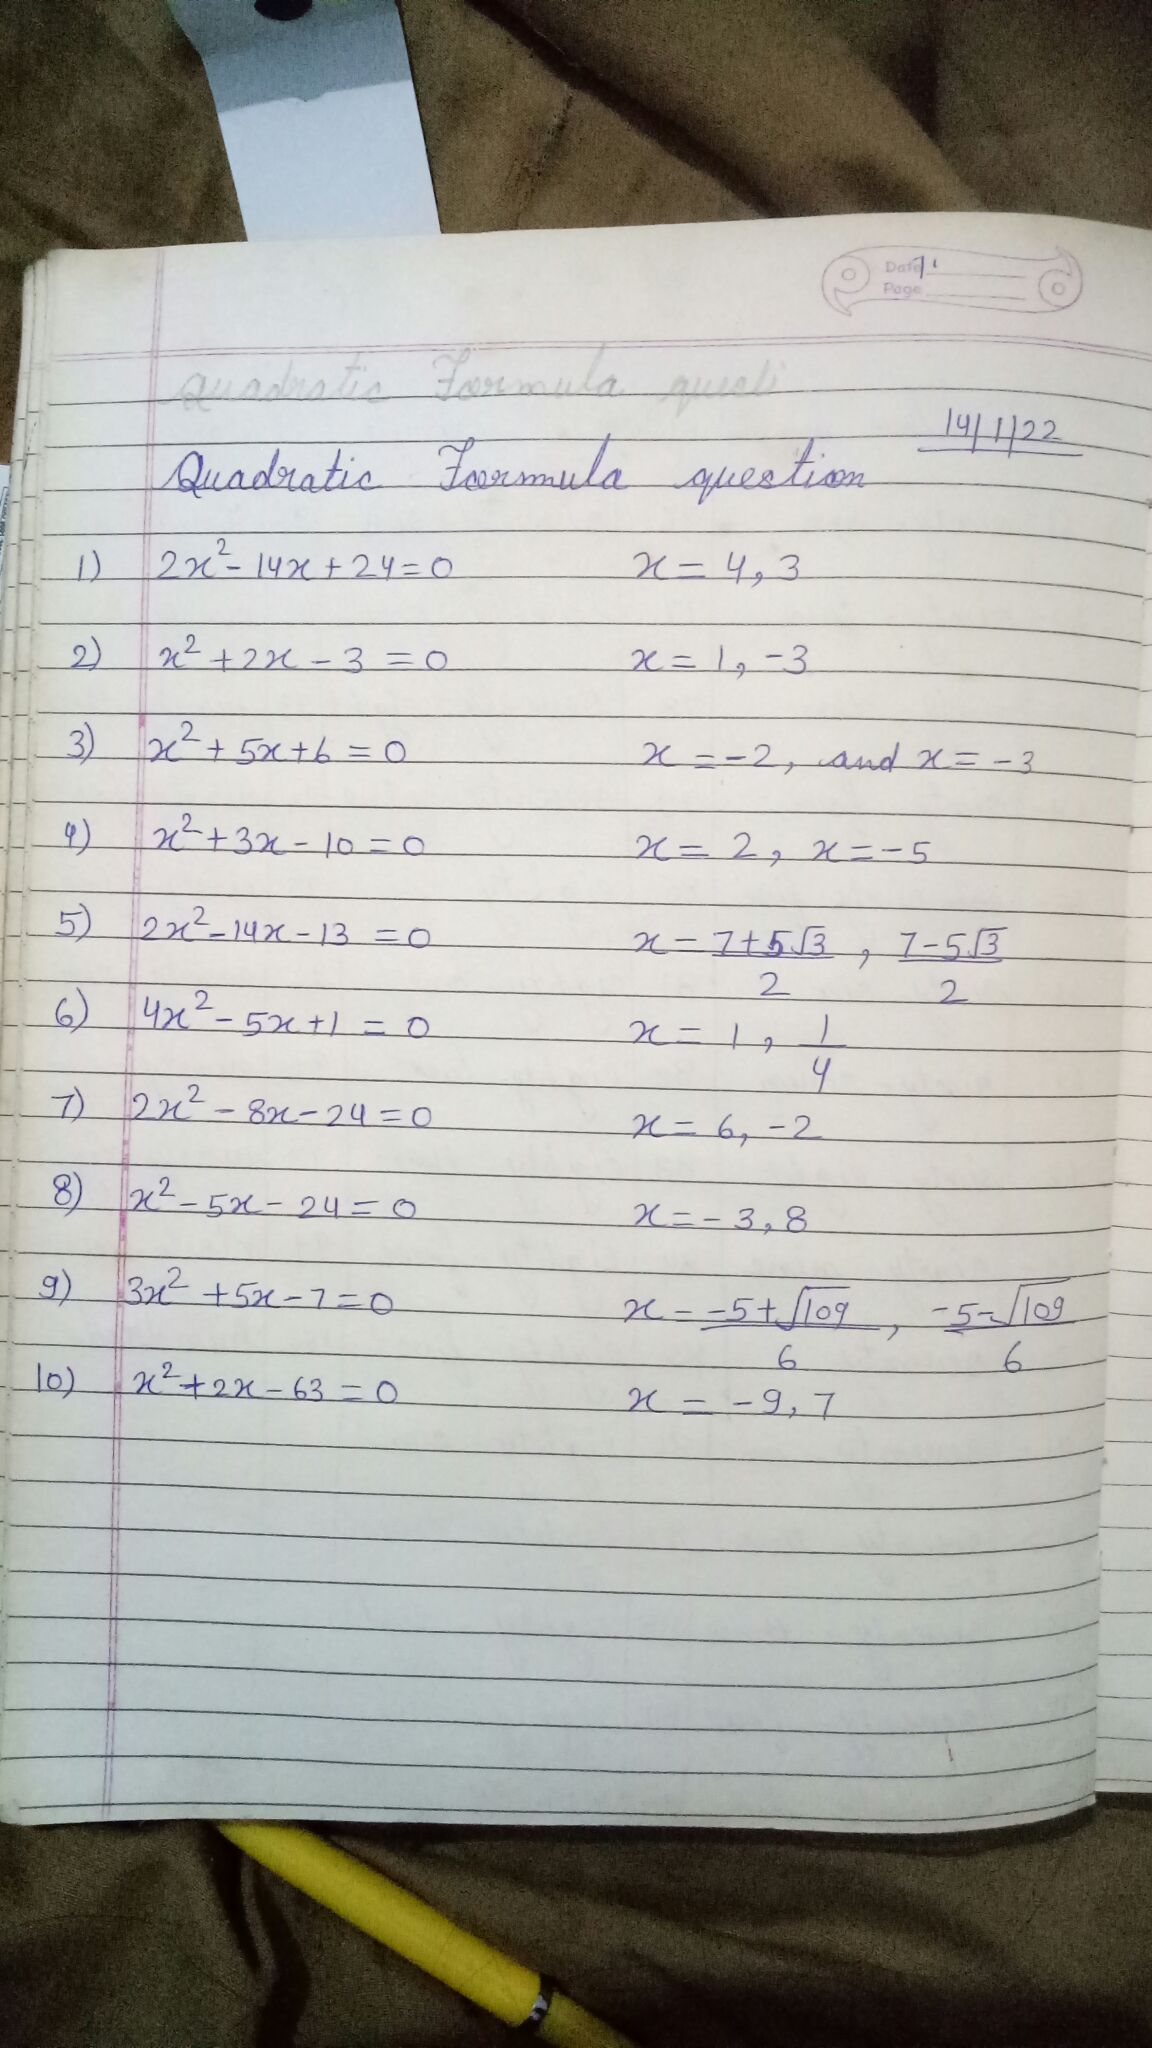 Date 1
Page
Quadratic Formula questi
14/1/22
Quadratic Formula question
1) 2x²-14x+24=0 x=4,3
2) x²+2x-3=0 x=1,-3
3) x²+5x+6=0 x=-2, and x=-3
4) x²+3x-10=0 x=2, x=-5
5) 2x²-14x-13=0 x=7+5√3/2, 7-5√3/2
6) 4x²-5x+1=0 x=1, 1/4
7) 2x²-8x-24=0 x=6,-2
8) x²-5x-24=0 x=-3,8
9) 3x²+5x-7=0 x=-5+√109/6, -5-√109/6
10) x²+2x-63=0 x=-9,7